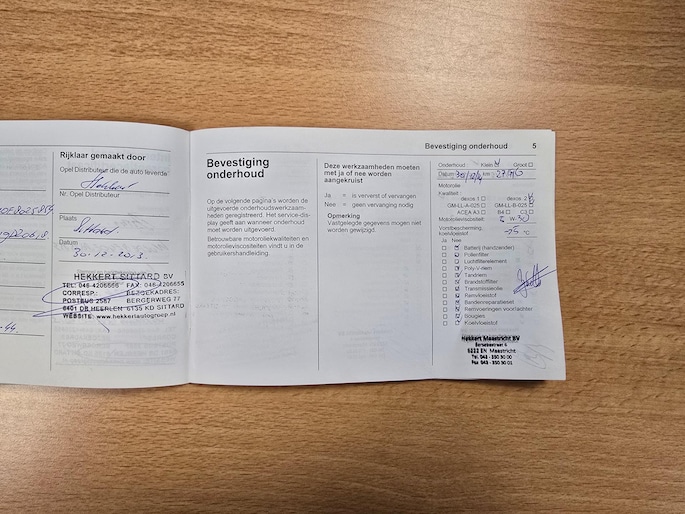 Rijklaar gemaakt door
Opel Distributeur die de auto leverde
Hekkert
Nr. Opel Distributeur
Plaats
Sittard
Datum
30-12-2013
HEKKERT SITTARD BV
TEL: 046-4206666 FAX: 046-4206655
CORRESP.: BEZOEKADRES:
POSTBUS 2587 BERGERWEG 77
6401 DB HEERLEN 6135 KD SITTARD
WEBSITE: www.hekkertautogroep.nl
Bevestiging
onderhoud
Op de volgende pagina's worden de
uitgevoerde onderhoudswerkzaam-
heden geregistreerd. Het service-dis-
play geeft aan wanneer onderhoud
moet worden uitgevoerd.
Betrouwbare motoroliekwaliteiten en
motorolieviscositeiten vindt u in de
gebruikershandleiding.
Deze werkzaamheden moeten
met ja of nee worden
aangekruist
Ja = is ververst of vervangen
Nee = geen vervanging nodig
Opmerking
Vastgelegde gegevens mogen niet
worden gewijzigd.
Bevestiging onderhoud 5
Onderhoud: Klein Groot
Datum km
Motorolie
Kwaliteit: dexos 1 dexos 2
GM-LL-A-025 GM-LL-B-025
ACEA A3 B4 C3
Motorolieviscositeit: 5 W-30
Vorstbescherming
koelvloeistof -25 °C
Ja Nee
Batterij (handzender)
Pollenfilter
Luchtfilterelement
Poly-V-riem
Tandriem
Brandstoffilter
Transmissieolie
Remvloeistof
Bandenreparatieset
Remvoeringen voor/achter
Bougies
Koelvloeistof
Hekkert Maastricht BV
6222 EN Maastricht